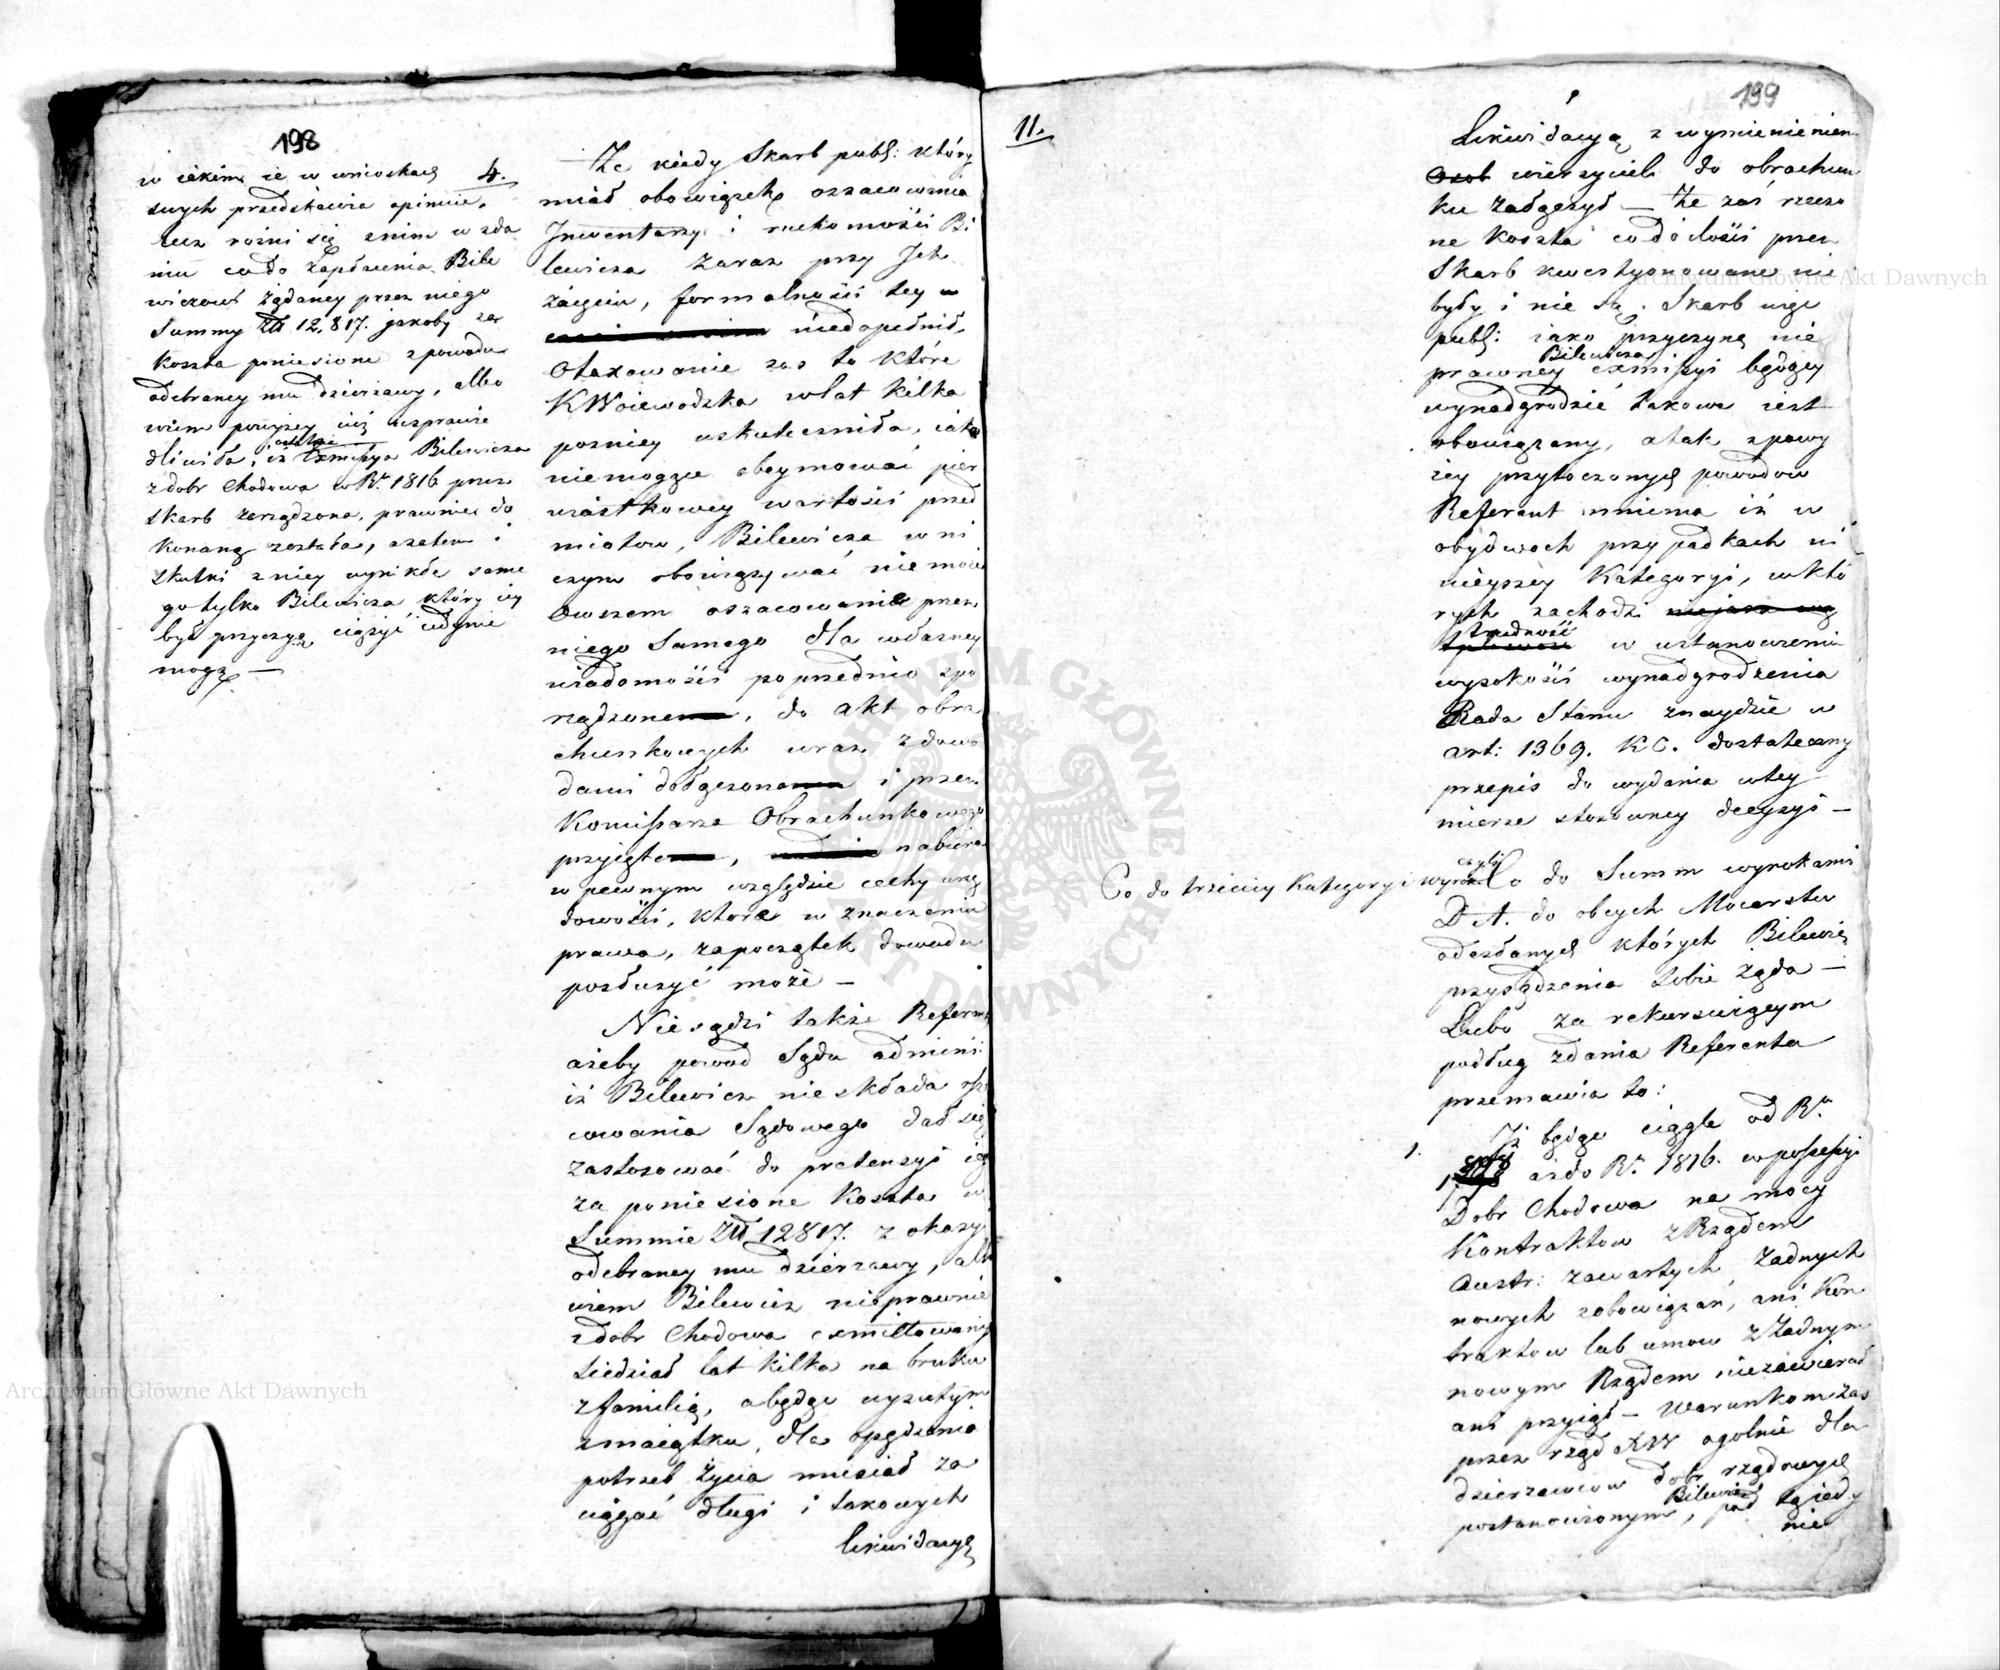 198
w jakim je w wnioskach
swych przedstawia opinie,
lecz rożni się z nim w zda
niu co do zapłacenia Bile
wiczowi żądaney przez niego
Summy Złł 12,817. jakoby za
koszta poniesione z powodu
odebraney mu dzierżawy, albo
wiem powyżey iuż usprawie
dliwiła, iż Exmissya Bilewicza
z dobr Chodowa w Rr. 1816 przez
skarb zarządzona, prawnie do
konaną została, a zatem i
skutki z niey wynikłe same
go tylko Bilewicza który iey
był przyczyną ciążyć iedynie
mogą. —
4.
Że kiedy Skarb publ: który
miał obowiązek oszacowania
Inwentarzy i ruchomości Bi
lewicza zaraz przy Ich
zaięciu, formalności tey
niedopełnił,
Otaxowanie zas to które
K Woiewodzka w lat kilka
pozniey uskuteczniła, iako
niemogące obeymować pier
wiastkowey wartości przed
miotow, Bilewicza w ni
czym obowiązywać nie może
Owszem oszacowanie przez
niego Samego dla własney
wiadomości poprzednio spo
rządzone, do akt obra
chunkowych wraz z dowo
dami dołączone i przez
Komissarza Obrachunkowego
przyięte, nabiera
w pewnym względzie cechy urzę
dowości, ktora w znaczeniu
prawa, za początek dowodu
posłużyć może —
Nie sądzi także Referent
ażeby powod Sądu admini:
iż Bilewicz nie składa
cowania Sądowego dał się
zastosować do pretensyi ieg
za poniesione Koszta w
Summie Złł 12817. z okazyi
odebraney mu dzierzawy, albo
wiem Bilewicz nieprawnie
z dobr Chodowa exmittowany
siedział lat kilka na bruku
z familią, a będąc wyzutym
z maiątku, dla opędzenia
potrzeb życia musiał za
ciągać długi i takowych
likwidacyą
199
11.
Likwidacyą z wymienieniem
Osob wierzycieli do obrachun
ku załączył — Że zaś rzeczo
ne Koszta co do ilości przez
Skarb kwestyonowane nie
były i nie są, Skarb więc
publ: iako przyczyną nie
Bilewicza
prawney exmissyi będący
wynadgrodzić takowe iest
obowiązany, a tak z powy
żey przytoczonych powodow
Referent mniema iż w
obydwoch przypadkach ni
nieyszey Kategoryi, w któ
rych zachodzi
trudność
w ustanowieniu
wysokości wynadgrodzenia
Rada Stanu znaydzie w
art: 1369. KC. dostateczny
przepis do wydania w tey
mierze stosowney decyzyi —
Co do trzeciey Kategoryi
czyli
Co do Summ wyrokami
D A. do obcych Mocarstw
odesłanych których Bilewicz
przysądzenia sobie żąda —
Lubo za rekursuiącym
podług zdania Referenta
przemawia to:
1.
Iż będąc ciągle od Rr.
aż do Rr. 1816. w possessyi
Dobr Chodowa na mocy
Kontraktow z Rządem
Austr: zawartych żadnych
nowych zobowiązań, ani Kon
traktow lub umow z żadnym
nowym Rządem niezawierał
ani przyiął — Warunkom zas
przez rząd XW ogolnie dla
dzierzawcow dobr rządowych
Bilewicz
postanowionym, pod
nie